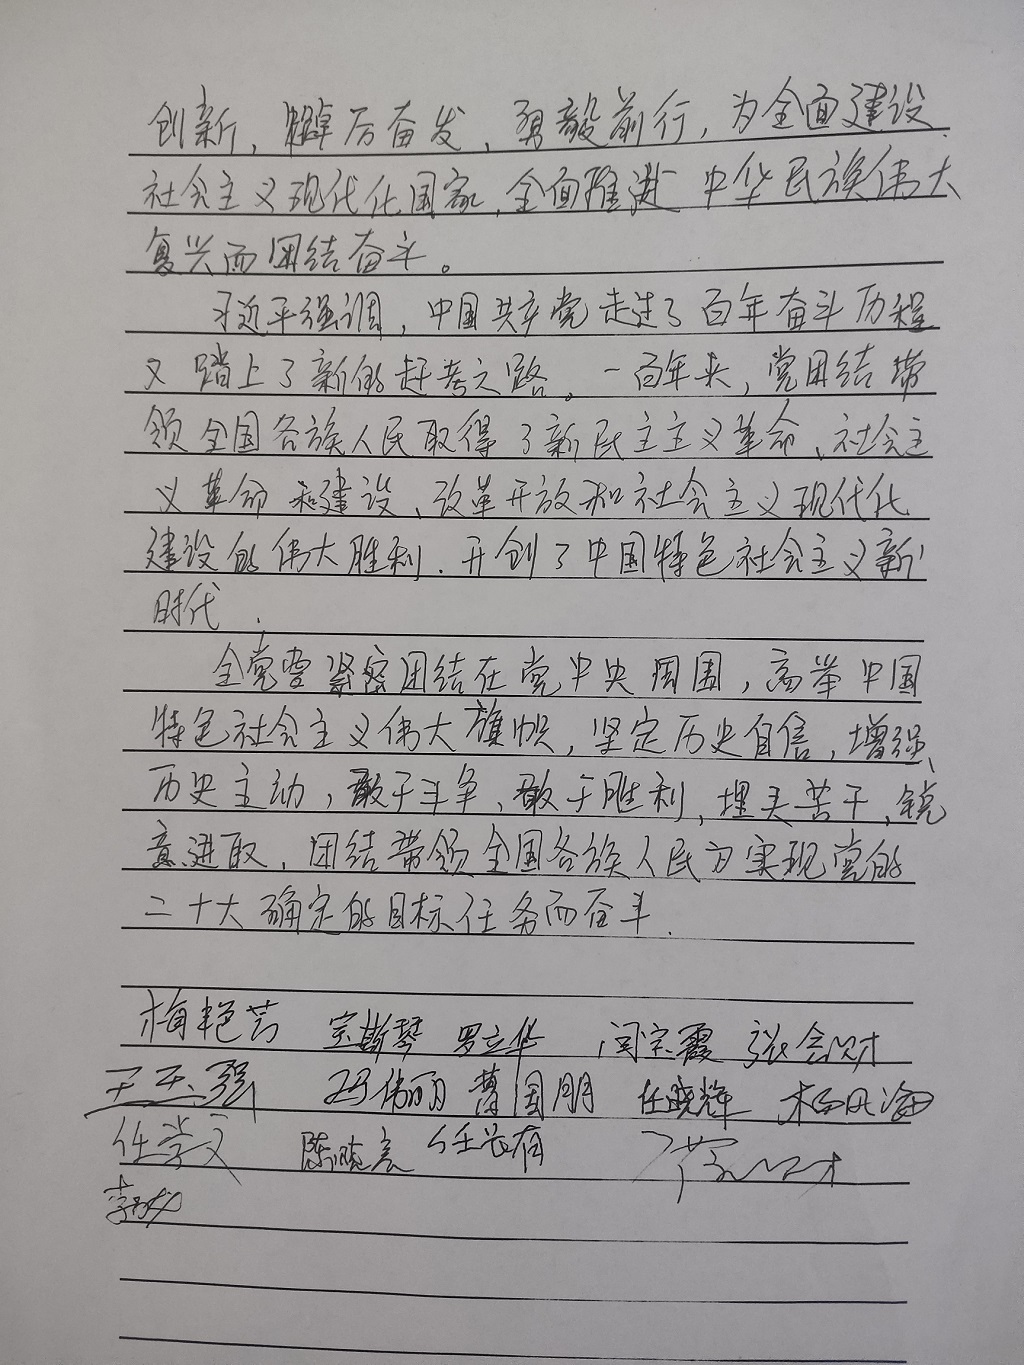 创新，踔厉奋发，勇毅前行，为全面建设
社会主义现代化国家，全面推进中华民族伟大
复兴而团结奋斗。
习近平强调，中国共产党走过了百年奋斗历程
又踏上了新的赶考之路。一百年来，党团结带
领全国各族人民取得了新民主主义革命、社会主
义革命和建设、改革开放和社会主义现代化
建设的伟大胜利．开创了中国特色社会主义新
时代．
全党要紧密团结在党中央周围，高举中国
特色社会主义伟大旗帜，坚定历史自信，增强
历史主动，敢于斗争、敢于胜利，埋头苦干，锐
意进取，团结带领全国各族人民为实现党的
二十大确定的目标任务而奋斗．
梅艳芸 宗斯琴 罗立华 闫宗霞 张会财
王玉强 冯伟丽 曹国朋 任晓辉
任学文 陈晓亮 任长有